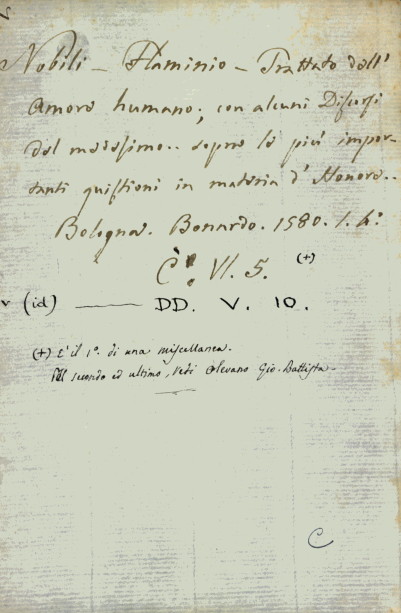 Nobili - Flaminio - Trattato dell'
Amore humano; con alcuni Discorsi
del medesimo.. sopra le più impor-
tanti quistioni in materia d'Honore..
Bologna. Bonardo. 1580. 1. 4°.
C. VI. 5. (+)
v (id) —— DD. V. 10.
(+) E' il 1°. di una miscellanea.
Pel secondo ed ultimo, Vedi Olevano Gio. Battista.
C